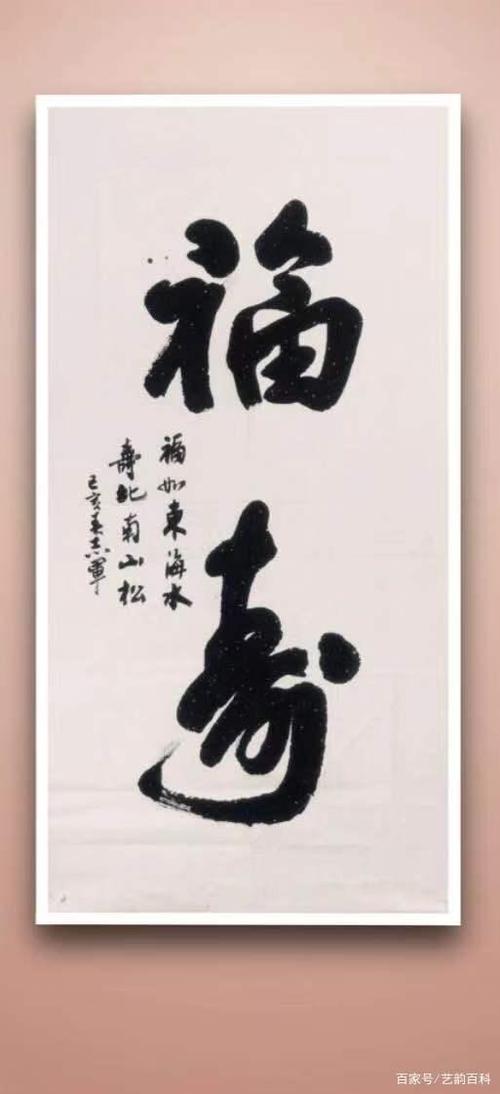 福
寿
福如東海水
壽比南山松
己亥春志軍
百家号/艺韵百科